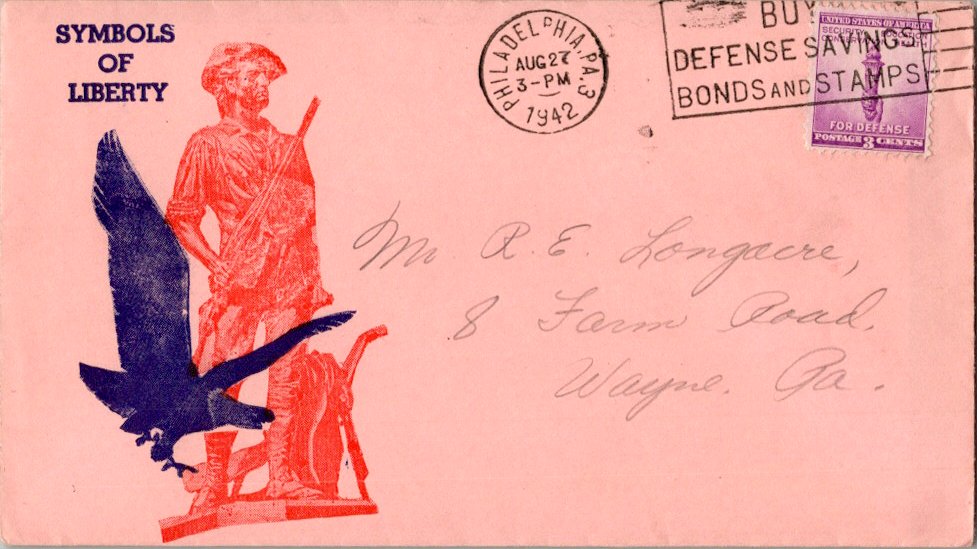 SYMBOLS
OF
LIBERTY
PHILADELPHIA, PA. 3
AUG 27
3-PM
1942
BUY
DEFENSE SAVINGS
BONDS AND STAMPS
UNITED STATES OF AMERICA
SECURITY EDUCATION
CONSERVATION HEALTH
FOR DEFENSE
POSTAGE 3 CENTS
Mr. R. E. Longacre,
8 Farm Road.
Wayne. Pa.